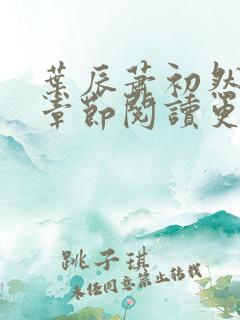 葉辰蕭初然
章節閱讀更
跳子琪
未經同意禁止轉載